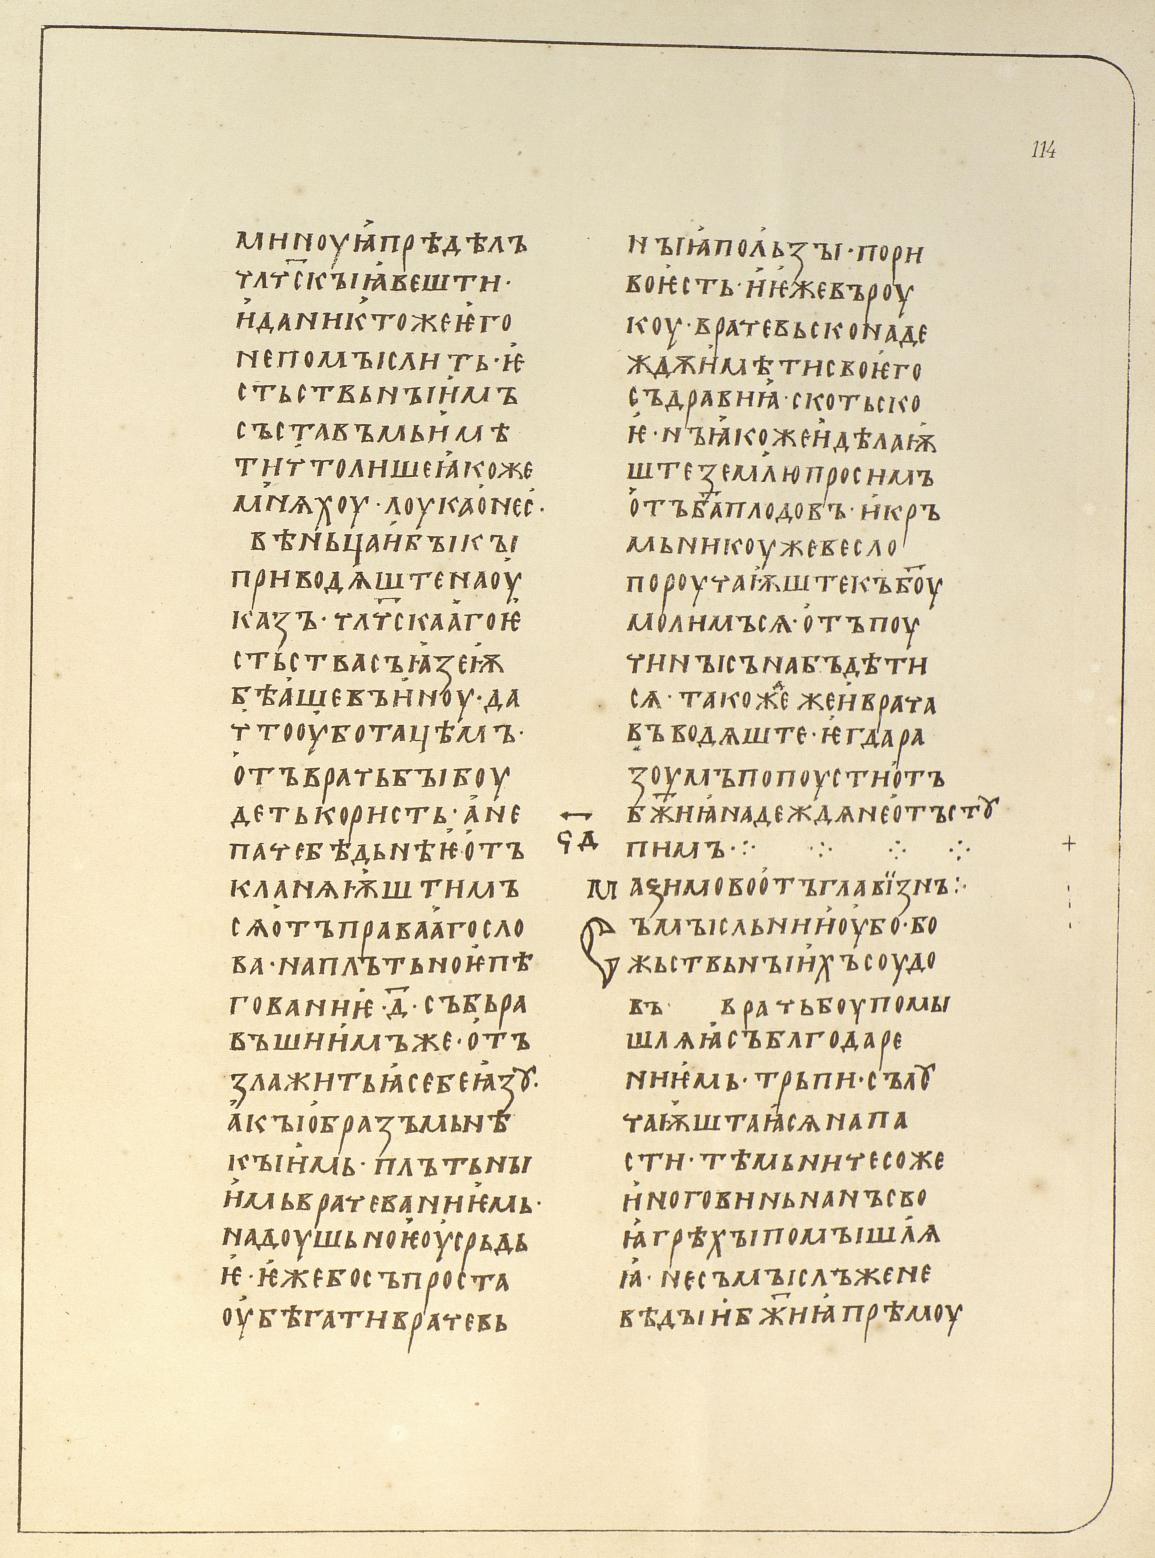 114
миноуꙗ҆прѣдѣлъ
члч҃скꙑꙗ҆вешти·
и҆даникътожеѥ҆го
непомꙑслить·ѥ҆
стьствьнꙑи҆мъ
съставъмьи҆мѣ
тич҆толишеꙗ҆коже
м҆нѧхоу·лоукао҆нес҆·
вѣн҆ьцаи҆бꙑкꙑ
приводѧ҆штенаоу҆
казъ·члч҃скаа҆гоѥ҆
стьствасъꙗ҆зеѭ҆
бѣа҆шевъи҆ноу·да
ч҆тооу҆ботацѣмъ·
о҆тъврачьбꙑбоу
детькористь·а҆не
пачебѣдьнѣѥ҆о҆тъ
кланѧѭ҆штимъ
сѧо҆тъправаа҆госло
ва·наплътьноѥ҆пѣ
гованиѥ҆·д҃·събьра
въшиим҆ъже·о҆тъ
злажитьꙗ҆себеꙗ҆зꙋ·
а҆кꙑо҆бразъмьнѣ
кꙑи҆мь·плътьнꙑ
и҆мьврачеваниѥ҆мь·
надоушьноѥ҆оу҆срьдь
ѥ҆·ѥ҆жебосъпроста
оу҆бѣгативрачевь
нꙑꙗ҆пол҆ьзꙑ·пори
воѥ҆сть·и҆ѥ҆жевъроу
коу·врачевьсконаде
ждѫи҆мѣтисвоѥ҆го
съдравиꙗ҆·скотьско
ѥ҆·нъꙗ҆кожеи҆дѣлаѭ҆
штеземл҆юпросимъ
о҆тъб҃аплодовъ·и҆кръ
мьникоужевесло
пороучаѭ҆штекъб҃оу
молимъсѧ·о҆тъпоу
чинꙑсънабъдѣти
сѧ·такождежеи҆врача
въводѧште·ѥ҆гдара
зоумъпопоустио҆тъ
бж҃иꙗ҆надеждѧнео҆тъстꙋ
пимъ·⁘ ⁘ ⁘ ⁘
҂ад
мазимовоо҆тъглавꙇ҆знъ⁘
Съмꙑсльнии҆оу҆бо·бо
жьствьнꙑи҆хъсоудо
въ· врачьбоупомꙑ
шлѧꙗ҆съблгодаре
ниѥ҆мь·трьпи·сълꙋ
чаѭ҆штаꙗ҆сѧнапа
сти·тѣмьничесоже
и҆ноговиньнанъсво
ꙗ҆грѣхꙑпомꙑшл҆ѧ
ꙗ҆·несъмꙑслъжене
вѣдꙑи҆бж҃иꙗ҆прѣмоу